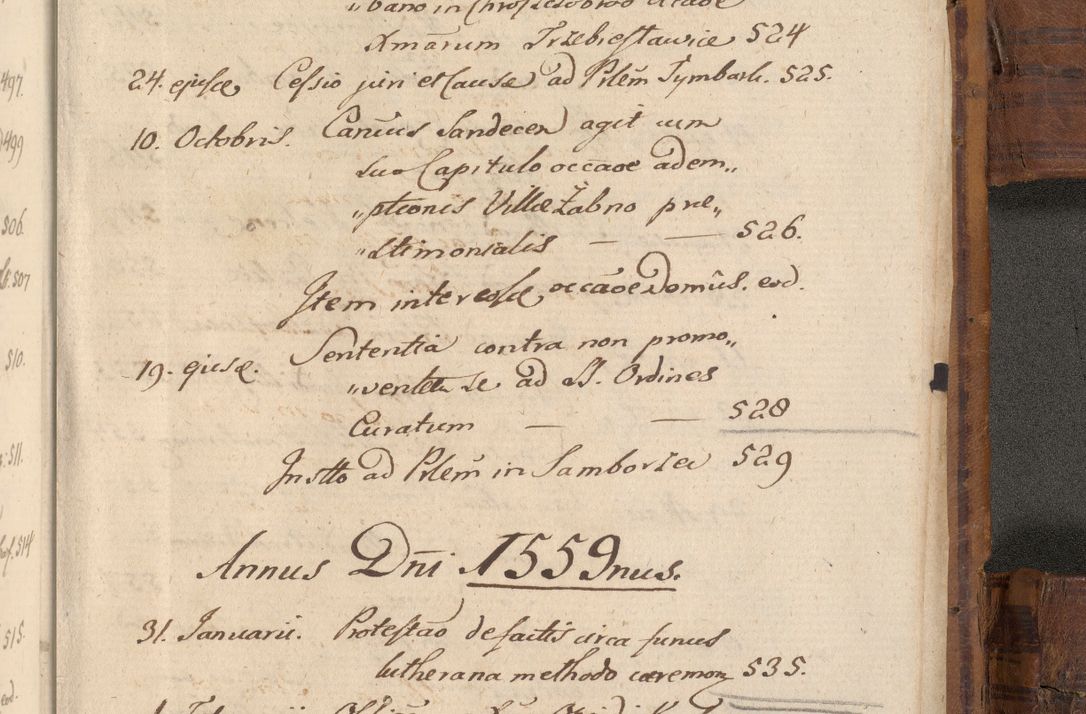 „bano in
Xmārum Trzebiesławice 524
24. ejusd. Cessio juri et Causæ ad Prlēm Tymbark. 525.
10. Octobris. Canius Sandecen agit cum
suo Capitulo occaoe adem„
„ptionis Villæ Żabno præ„
„stimonialis — — 526.
Item inter eosd. occāoe Domūs. eod.
19. ejusd. Sententia contra non promo„
„ventem se ad SS. Ordines
Curatum — — 528
Instto ad Prlēm in Samborzec 529
Annus Dñi 1559nus.
31. Januarii. Protestāo de factis circa funus
lutherana methodo cæremon 535.
497.
499
506.
507
510.
511.
514
515.
eod.